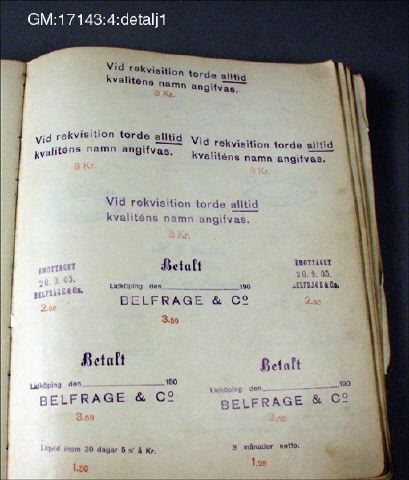 GM:17143:4:detalj1
Vid rekvisition torde alltid
kvaliténs namn angifvas.
3 Kr.
Vid rekvisition torde alltid
kvaliténs namn angifvas.
3 Kr.
Vid rekvisition torde alltid
kvaliténs namn angifvas.
3 Kr.
Vid rekvisition torde alltid
kvaliténs namn angifvas.
3 Kr.
EMOTTAGET
20. 9. 05.
BELFRAGE & Co.
2.50
Betalt
Lidköping den 190
BELFRAGE & Co
3.50
EMOTTAGET
20. 9. 05.
BELFRAGE & Co.
2.50
Betalt
Lidköping den 190
BELFRAGE & Co
3.50
Betalt
Lidköping den 190
BELFRAGE & Co
3.50
Liqvid inom 30 dagar 5 % å Kr.
1.50
3 månader netto.
1.25